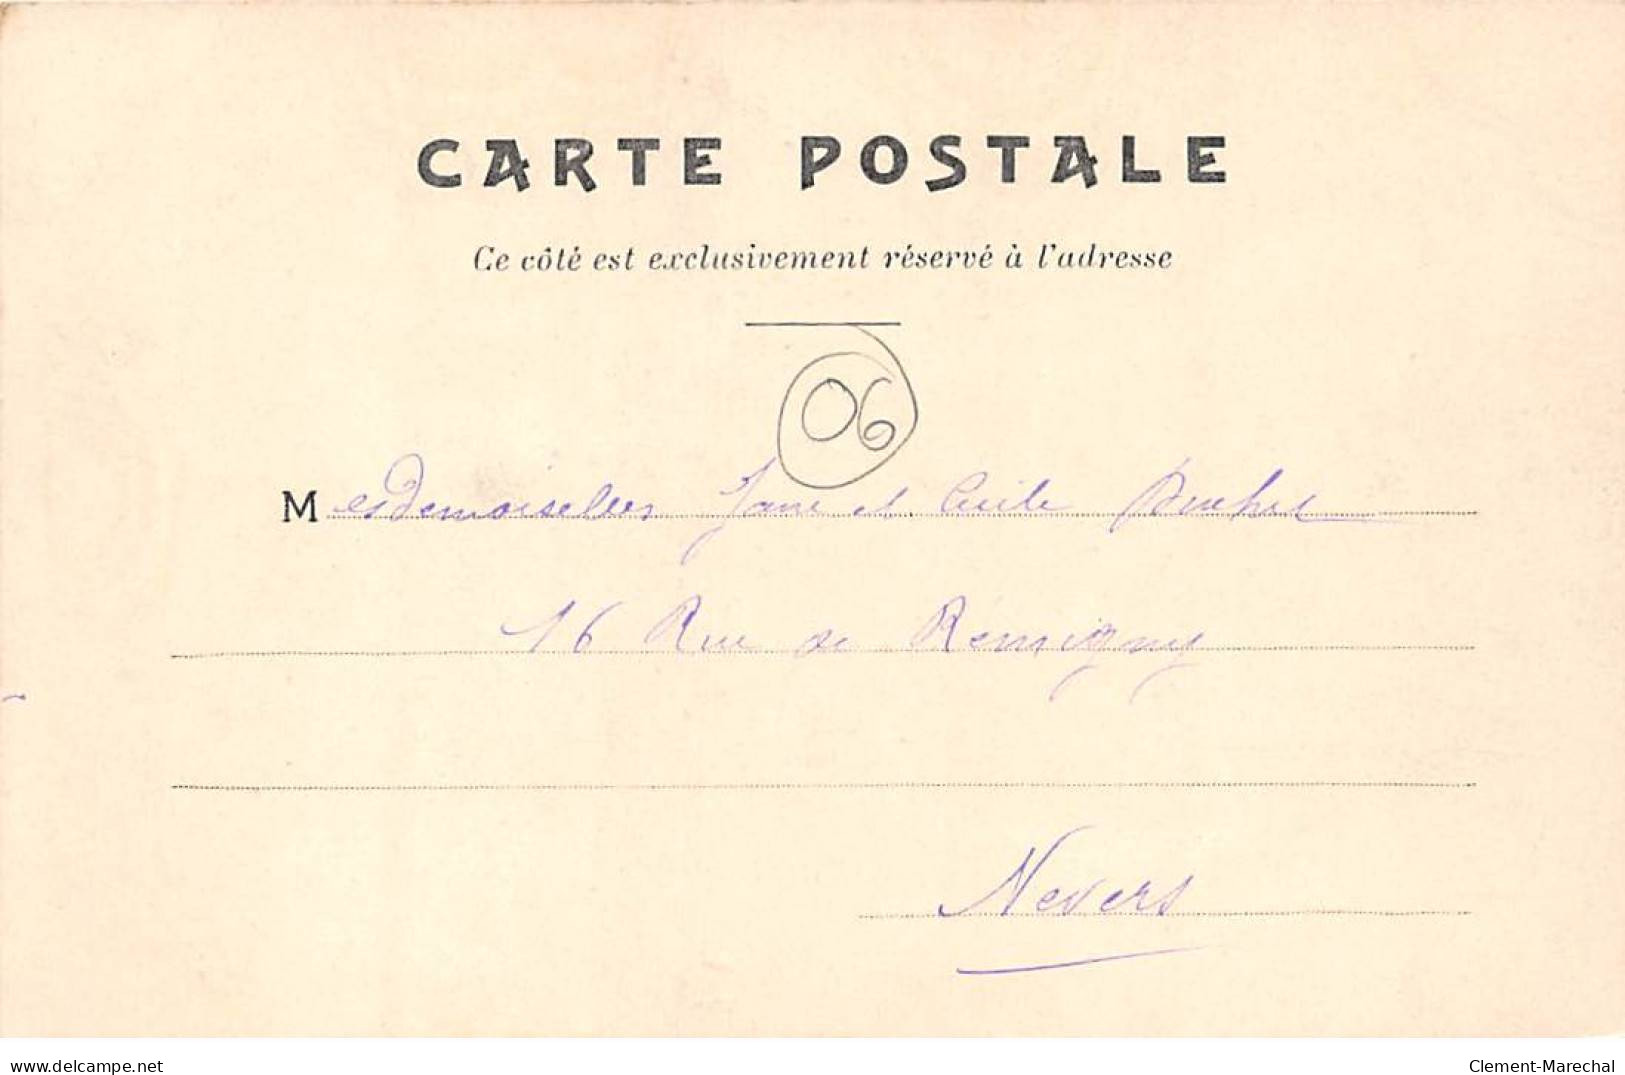 CARTE POSTALE
Ce côté est exclusivement réservé à l'adresse
06
Mesdemoiselles Jane et Cécile
16 Rue de Rémigny
Nevers
www.delcampe.net
Clement-Marechal